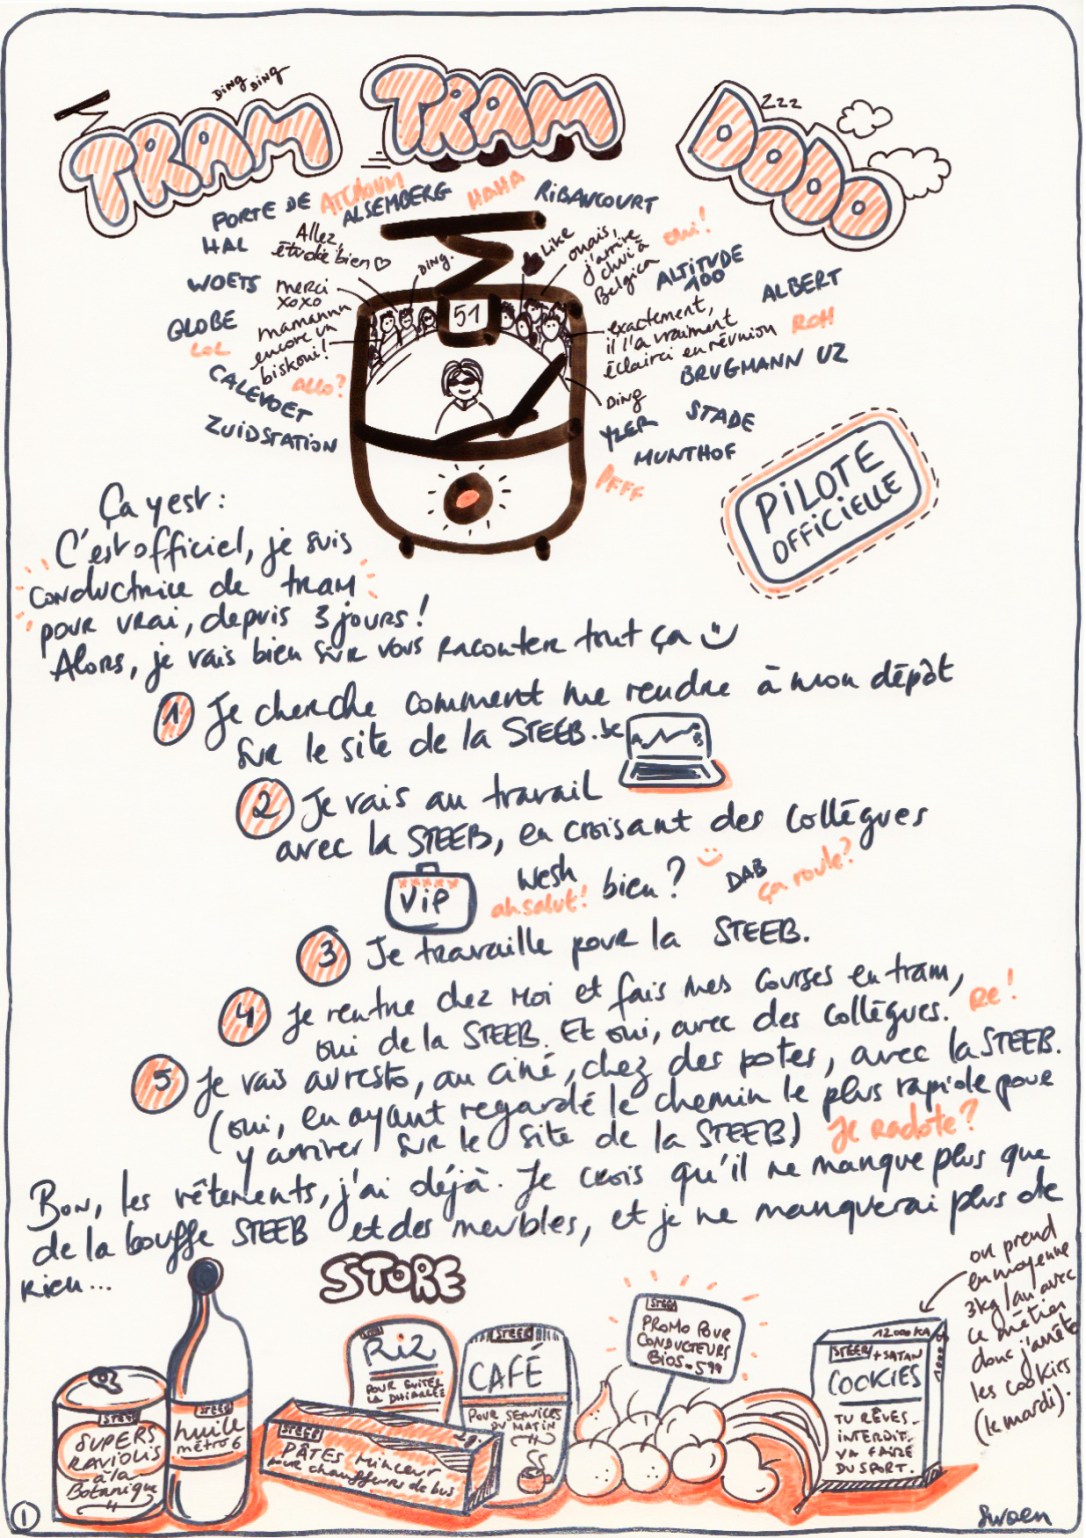 DING DING
TRAM TRAM DODO
ZZZ
PORTE DE HAL
ATCHOUM
ALSEMBERG
HAHA
RIBAUCOURT
Allez, étudie bien ♡
DING.
Like
ouais, j'arrive chui à Belgica
oui!
ALTITUDE 100
ALBERT
WOETS
merci xoxo
GLOBE
LOL
mamannn encore un biskoui!
ALLO?
CALEVOET
ZUIDSTATION
51
exactement, il l'a vraiment éclairci en réunion
ROH
BRUGMANN UZ
DING
YZER
STADE
MUNTHOF
PFFF
PILOTE
OFFICIELLE
Ça y est :
C'est officiel, je suis
conductrice de tram
pour vrai, depuis 3 jours !
Alors, je vais bien sûr vous raconter tout ça
1 Je cherche comment me rendre à mon dépôt
sur le site de la STEEB.be
A B
2 Je vais au travail
avec la STEEB, en croisant des collègues
VIP
Wesh
ah salut!
bien ?
DAB
ça roule?
3 Je travaille pour la STEEB.
4 Je rentre chez moi et fais mes courses en tram,
oui de la STEEB. Et oui, avec des collègues.
Re!
5 Je vais au resto, au ciné, chez des potes, avec la STEEB.
(oui, en ayant regardé le chemin le plus rapide pour
y arriver sur le site de la STEEB)
Je radote?
Bon, les vêtements, j'ai déjà. Je crois qu'il ne manque plus que
de la bouffe STEEB et des meubles, et je ne manquerai plus de
rien...
STORE
on prend
en moyenne
3kg/an avec
ce métier
donc j'arrête
les cookies
(le mardi).
STEEB
SUPERS
RAVIOLIS
à la
Botanique
STEEB
huile
métro 6
Riz
POUR EVITER
LA DHIARLEE
STEEB
CAFÉ
POUR SERVICES
DU MATIN
STEEB
2g.
PÂTES MINCEUR
pour chauffeurs de bus
STEEB
PROMO POUR
CONDUCTEURS
BIOS
12000 KA
STEEB + SATAN
COOKIES
TU RÊVES.
INTERDIT.
VA FAIRE
DU SPORT.
1
Swoen